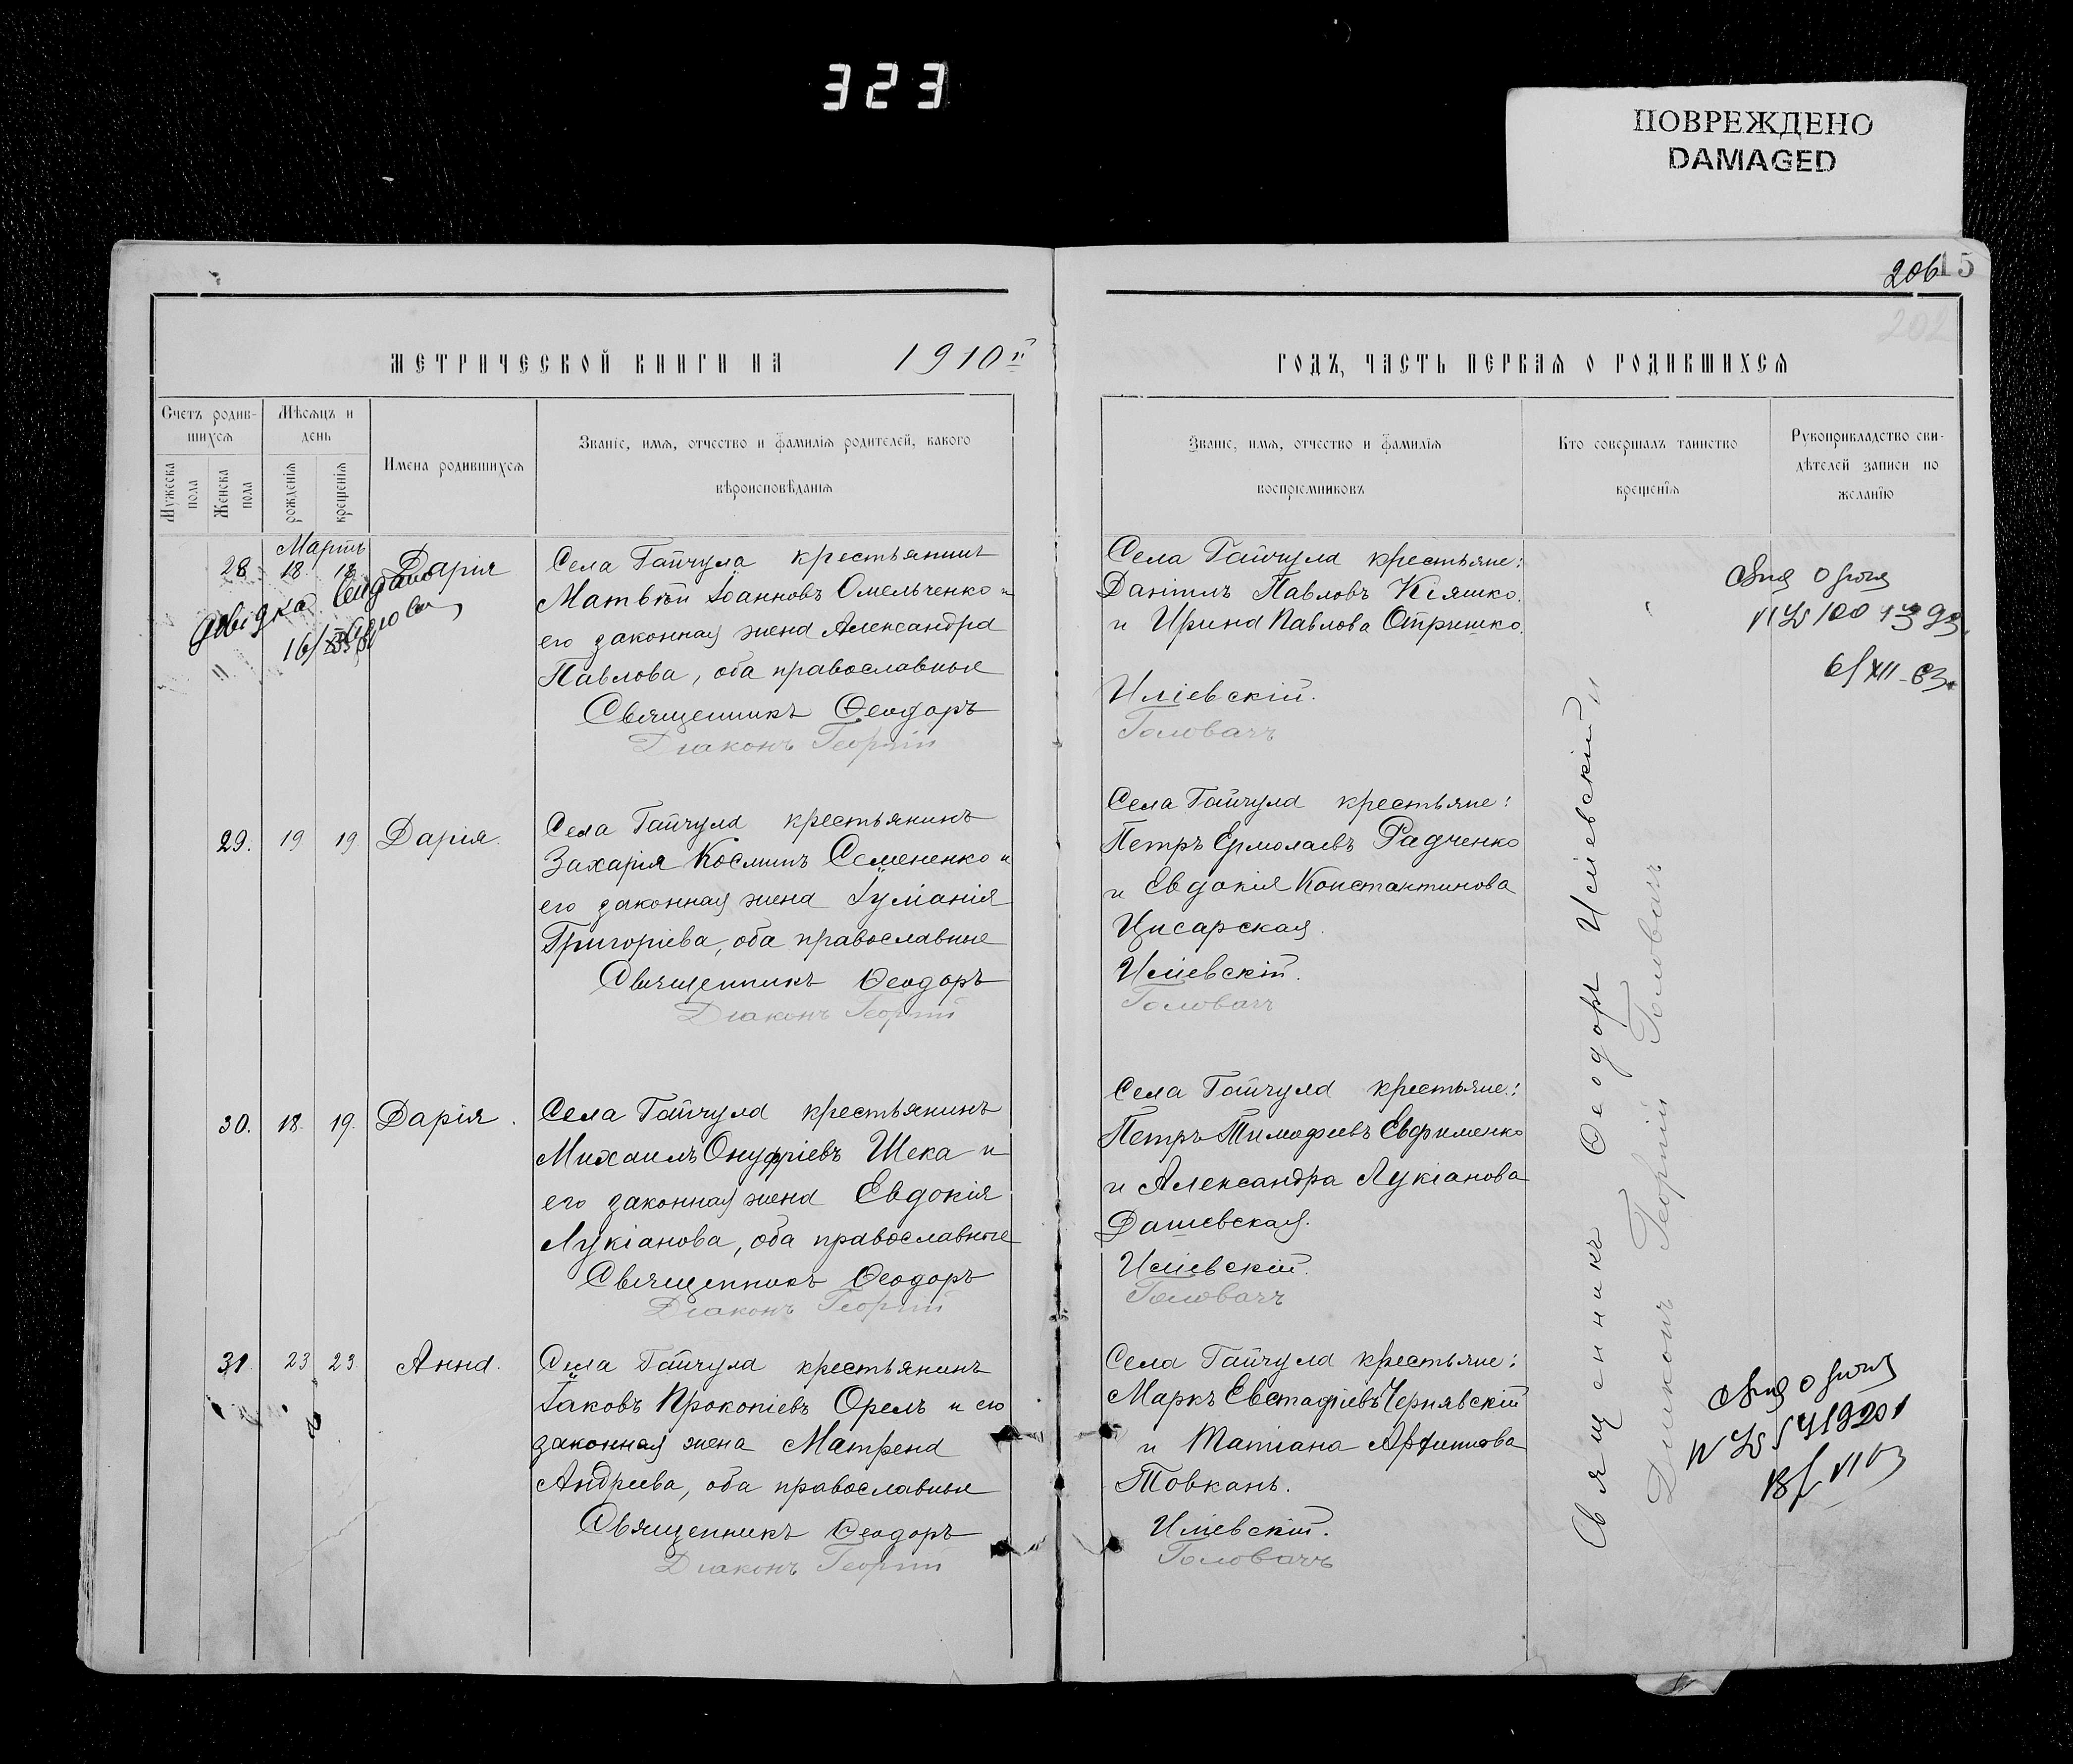 323
ПОВРЕЖДЕНО
DAMAGED
206
15
202
МЕТРИЧЕСКОЙ КНИГИ НА 1910й
ГОДЪ, ЧАСТЬ ПЕРВАЯ О РОДИВШИХСЯ
Счетъ родив-
шихся
Мужеска
пола
Женска
пола
Мѣсяцъ и
день
рожденія
крещенія
Имена родившихся
Званіе, имя, отчество и фамилія родителей, какого
вѣроисповѣданія
Званіе, имя, отчество и фамилія
воспріемниковъ
Кто совершалъ таинство
крещенія
Рукоприкладство сви-
дѣтелей записи по
желанію
Мартъ
28 18. 18 Дарія
Довідка видано
16/
Села Гайчула крестьянинъ
Матвѣй Іоанновъ Омельченко и
его законная жена Александра
Павлова, оба православные
Священникъ Ѳеодоръ
Діаконъ Георгій
Села Гайчула крестьяне:
Даніилъ Павловъ Кіяшко
и Ирина Павлова Отришко.
Иліевскій.
Головачъ
6/XII-63.
29. 19 19 Дарія.
Села Гайчула крестьянинъ
Захарія Косминъ Семененко и
его законная жена Іуліанія
Григоріева, оба православные
Священникъ Ѳеодоръ
Діаконъ Георгій
Села Гайчула крестьяне:
Петръ Ермолаевъ Радченко
и Евдокія Константинова
Цисарская.
Иліевскій.
Головачъ
30. 18. 19. Дарія.
Села Гайчула крестьянинъ
Михаилъ Онуфріевъ Шека и
его законная жена Евдокія
Лукіанова, оба православные
Священникъ Ѳеодоръ
Діаконъ Георгій
Села Гайчула крестьяне:
Петръ Тимофеевъ Евфименко
и Александра Лукіанова
Дашевская.
Иліевскій.
Головачъ
31. 23 23. Анна.
Села Гайчула крестьянинъ
Іаковъ Прокопіевъ Орелъ и его
законная жена Матрена
Андреева, оба православные
Священникъ Ѳеодоръ
Діаконъ Георгій
Села Гайчула крестьяне:
Маркъ Евстафіевъ Чернявскій
и Татіана
Товкань.
Иліевскій.
Головачъ
Священникъ Ѳеодоръ Иліевскій
Діаконъ Георгій Головачъ